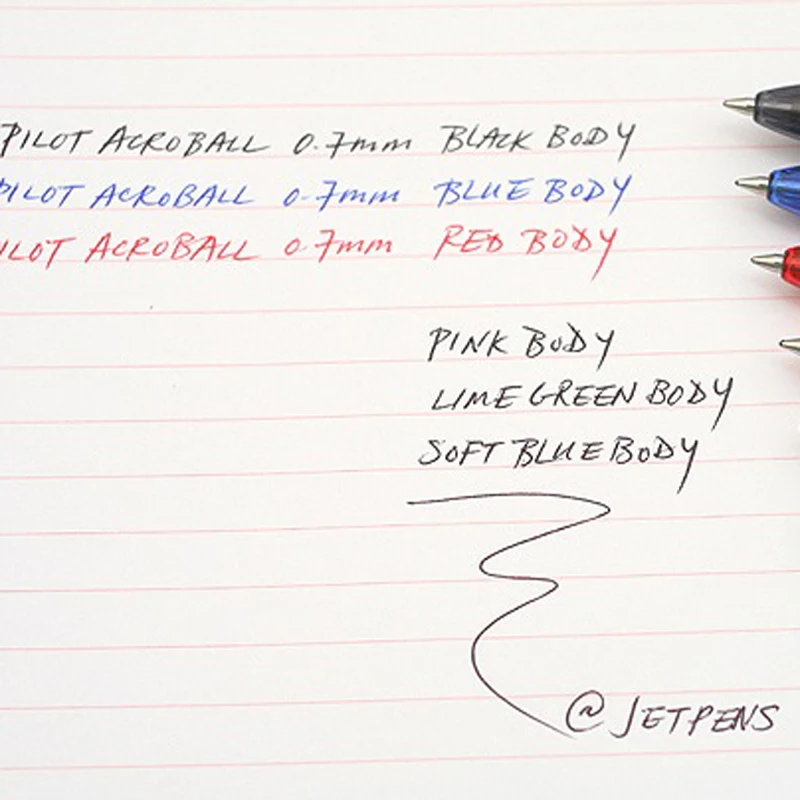 PILOT ACROBALL 0.7mm BLACK BODY
PILOT ACROBALL 0.7mm BLUE BODY
ILOT ACROBALL 0.7mm RED BODY
PINK BODY
LIME GREEN BODY
SOFT BLUE BODY
@ JETPENS